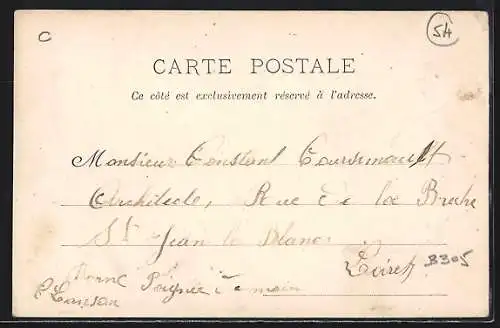 C
54
CARTE POSTALE
Ce côté est exclusivement réservé à l'adresse.
Monsieur Constent
Architecte, Rue de la Breche
St Jean le Blanc
Loiret
B305
Bonne Poignée de main